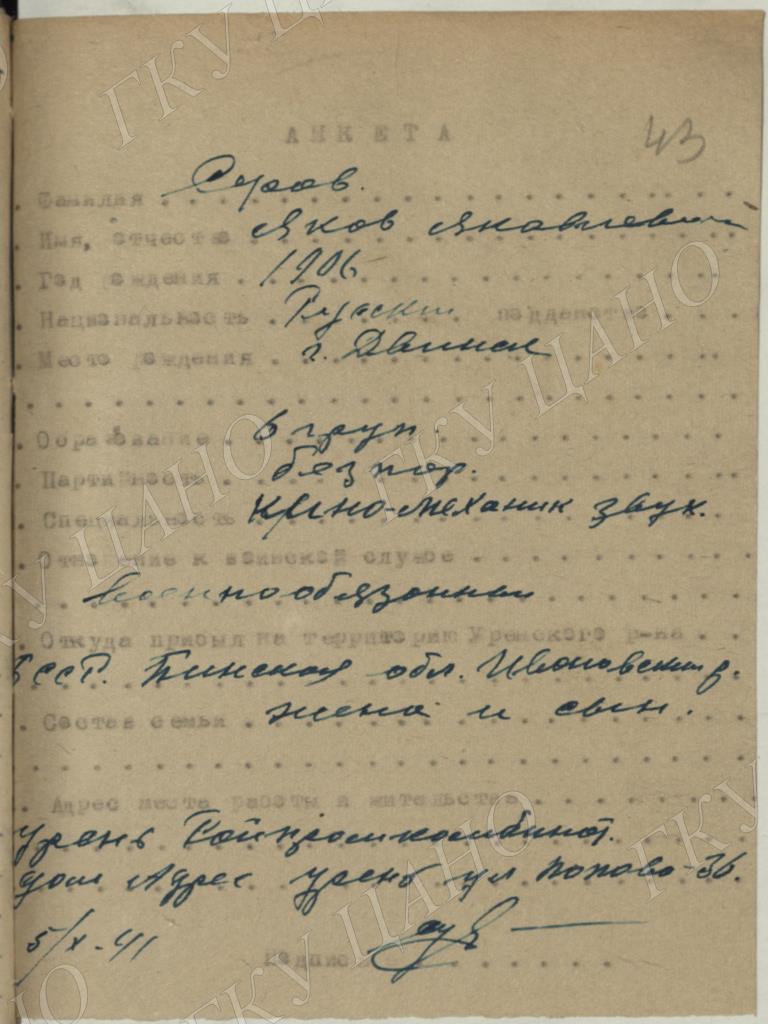 43
АНКЕТА
Фамилия Серов.
Имя, отчество Яков Яковлевич
Год рождения 1906
Национальность Русский подданство
Место рождения г. Двинск
Образование 6 груп.
Партийность без пар.
Специальность Кино-механик звук.
Отношение к воинской службе
Военнообязанный
Откуда прибыл на территорию Уренского р-на
БССР. Пинская обл. Ивановский р.
Состав семьи жена и сын.
Адрес места работы и жительства
Урень Райпромкомбинат.
дом Адрес урень ул Попова-36.
5/X-41
Подпись
ГКУ ЦАНО